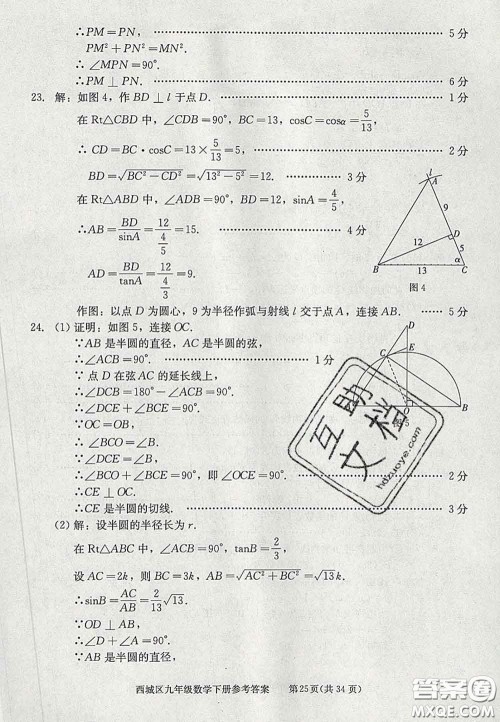 ∴PM=PN. ………… 5分
PM²+PN²=MN².
∴∠MPN=90°.
∴PM⊥PN. ………… 6分
23. 解：如图4，作BD⊥l于点D. ………… 1分
在Rt△CBD中，∠CDB=90°，BC=13，cosC=cosα=5/13，
∴CD=BC·cosC=13×5/13=5. ………… 2分
BD=√(BC²−CD²)=√(13²−5²)=12. ………… 3分
在Rt△ABD中，∠ADB=90°，sinA=4/5，
∴AB=BD/sinA=12/(4/5)=15. ………… 4分
AD=BD/tanA=12/(4/3)=9.
l
A
9
D
12
5
α
B
13
C
图4
作图：以点D为圆心，9为半径作弧与射线l交于点A，连接AB. …… 5分
24. (1)证明：如图5，连接OC.
∵AB是半圆的直径，AC是半圆的弦，
∴∠ACB=90°. ………… 1分
∵点D在弦AC的延长线上，
∴∠DCB=180°−∠ACB=90°.
∴∠DCE+∠BCE=90°.
∵OC=OB，
∴∠BCO=∠B.
∵∠DCE=∠B，
∴∠BCO+∠BCE=90°，即∠OCE=90°. ………… 2分
∴CE⊥OC.
∴CE是半圆的切线. ………… 3分
D
E
C
O
B
互助文档
hdzuoye.com
(2)解：设半圆的半径长为r.
在Rt△ABC中，∠ACB=90°，tanB=2/3，
设AC=2k，则BC=3k，AB=√(AC²+BC²)=√13k.
∴sinB=AC/AB=2/13√13.
∵OD⊥AB，
∴∠D+∠A=90°.
∵AB是半圆的直径，
西城区九年级数学下册参考答案 第25页(共34页)
答案圈
MXQE.COM